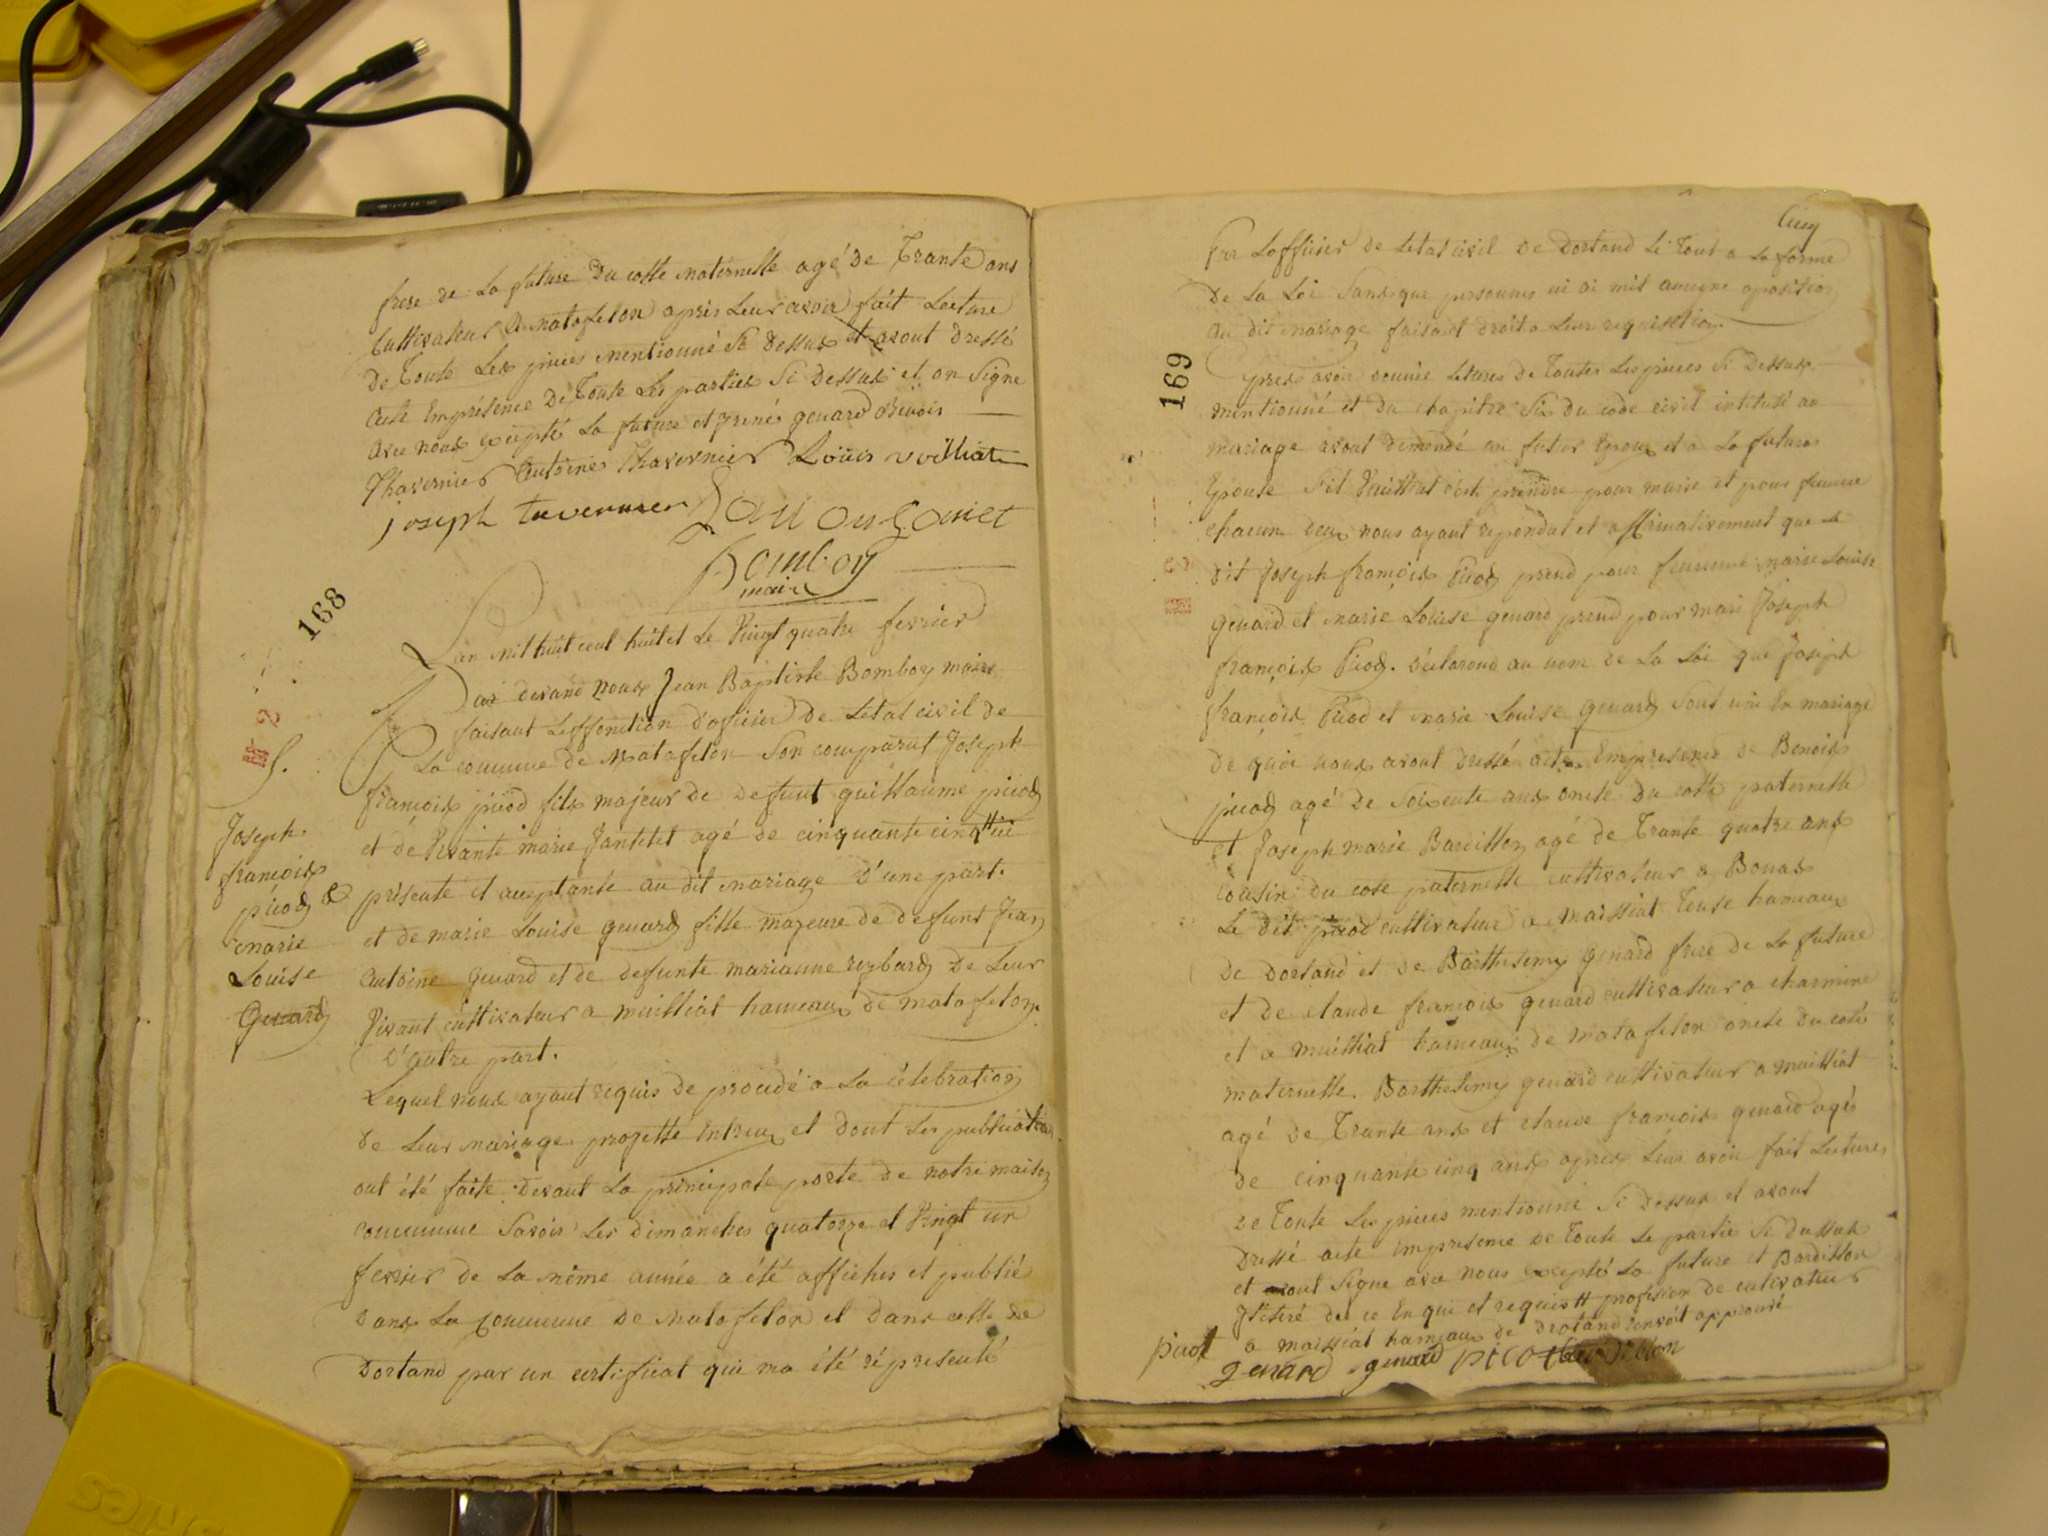 frere de La future Du coste maternelle agé de Trante ans
Cultivateur A matafelon après Leur avoir fait Lecture
de Toute Les pieces mentionné Si Dessus et avont dressé
acte Empresence De Toute Les parties Si Dessus et on Signe
avec nous excepté La future et genard Benois
Thavernier Antoine Thavernier Louis vuilliat
joseph tavernier
Bomboy
maire
168
Lan mil huit cent huit et Le Vingt quatre fevrier
Par devand nous Jean Baptiste Bomboy maire
faisant Leffonction d'oficier De Letat civil de
La commune de Matafelon Son comparut Joseph
françois picod fils majeur de defunt guillaume picod
et de Vivante marie Jantelet agé de cinquante cinq
présente et aceptante au dit mariage D'une part.
et de marie Louise genard fille majeure de defunt Jean
Antoine Genard et de defunte marianne reybard De Leur
Vivant cultivateur a muilliat hameaux de matafelon
D'autre part.
Lequel nous ayant requis de procedé a La célebration
de Leur mariage progetté Entreux et dont Les publication
ont été faite Devant La principale porte de notre maison
commune Savoir Les dimanches quatorze et Vingt un
fevrier de La même année a été affiches et publié
Dans La Commune De Matafelon et Dans celle de
Dortand par un certificat qui ma été représenté
S.
Joseph
françois
picod &
marie
Louise
Genard
169
Par Lofficier de Letat civil De Dortand Le Tout a La forme
De La Loi Sans que personnes ni ai mit aucune oposition
au dit mariage faisant droit a Leur requisition
apres avoir donnée Letures de Toutes Les pieces Si Dessus
mentionné et du chapitre Six du code civil intitulé au
mariage avont demendé au futur Epoux et a La future
Epouse Sil Veullent prendre pour marie et pour femme
chacun deux nous ayant repondut et affirmativement que Le
dit Joseph françois Picod prend pour femme marie Louise
genard et marie Louise genard prend pour mari Joseph
françois Picod. Declarond au nom de La Loi que Joseph
françois Picod et marie Louise Genard Sont uni En mariage
De quoi nous avont Dressé acte Empresence de Benois
picod agé De Soixente ans oncle Du cotte paternelle
et Joseph marie Bardillon agé de Trante quatre ans
cousin du cote paternelle cultivateur a Bonas
Le Dit picod cultivateur a maissiat Teuse hameaux
De Dortand et De Barthelemy Genard frere de La future
et de claude françois genard cultivateur a charmine
et a muilliat hameaux de matafelon oncle du coté
maternelle. Barthelemy genard cultivateur a muilliat
agé De Trante ans et claude françois genard agés
de cinquante cinq ans apres Leur avoir fait Lecture
De Toute Les pieces mentionné Si Dessus et avont
Dressé acte impresence De Toute Le partie Si Dussus
et avont Signe avec nous excepté La future et Bardillon
Jtteré de ce Enqui et requis profession de cultivateur
a maissiat hameaux de Drotand approuvé
picot
genard genard picot